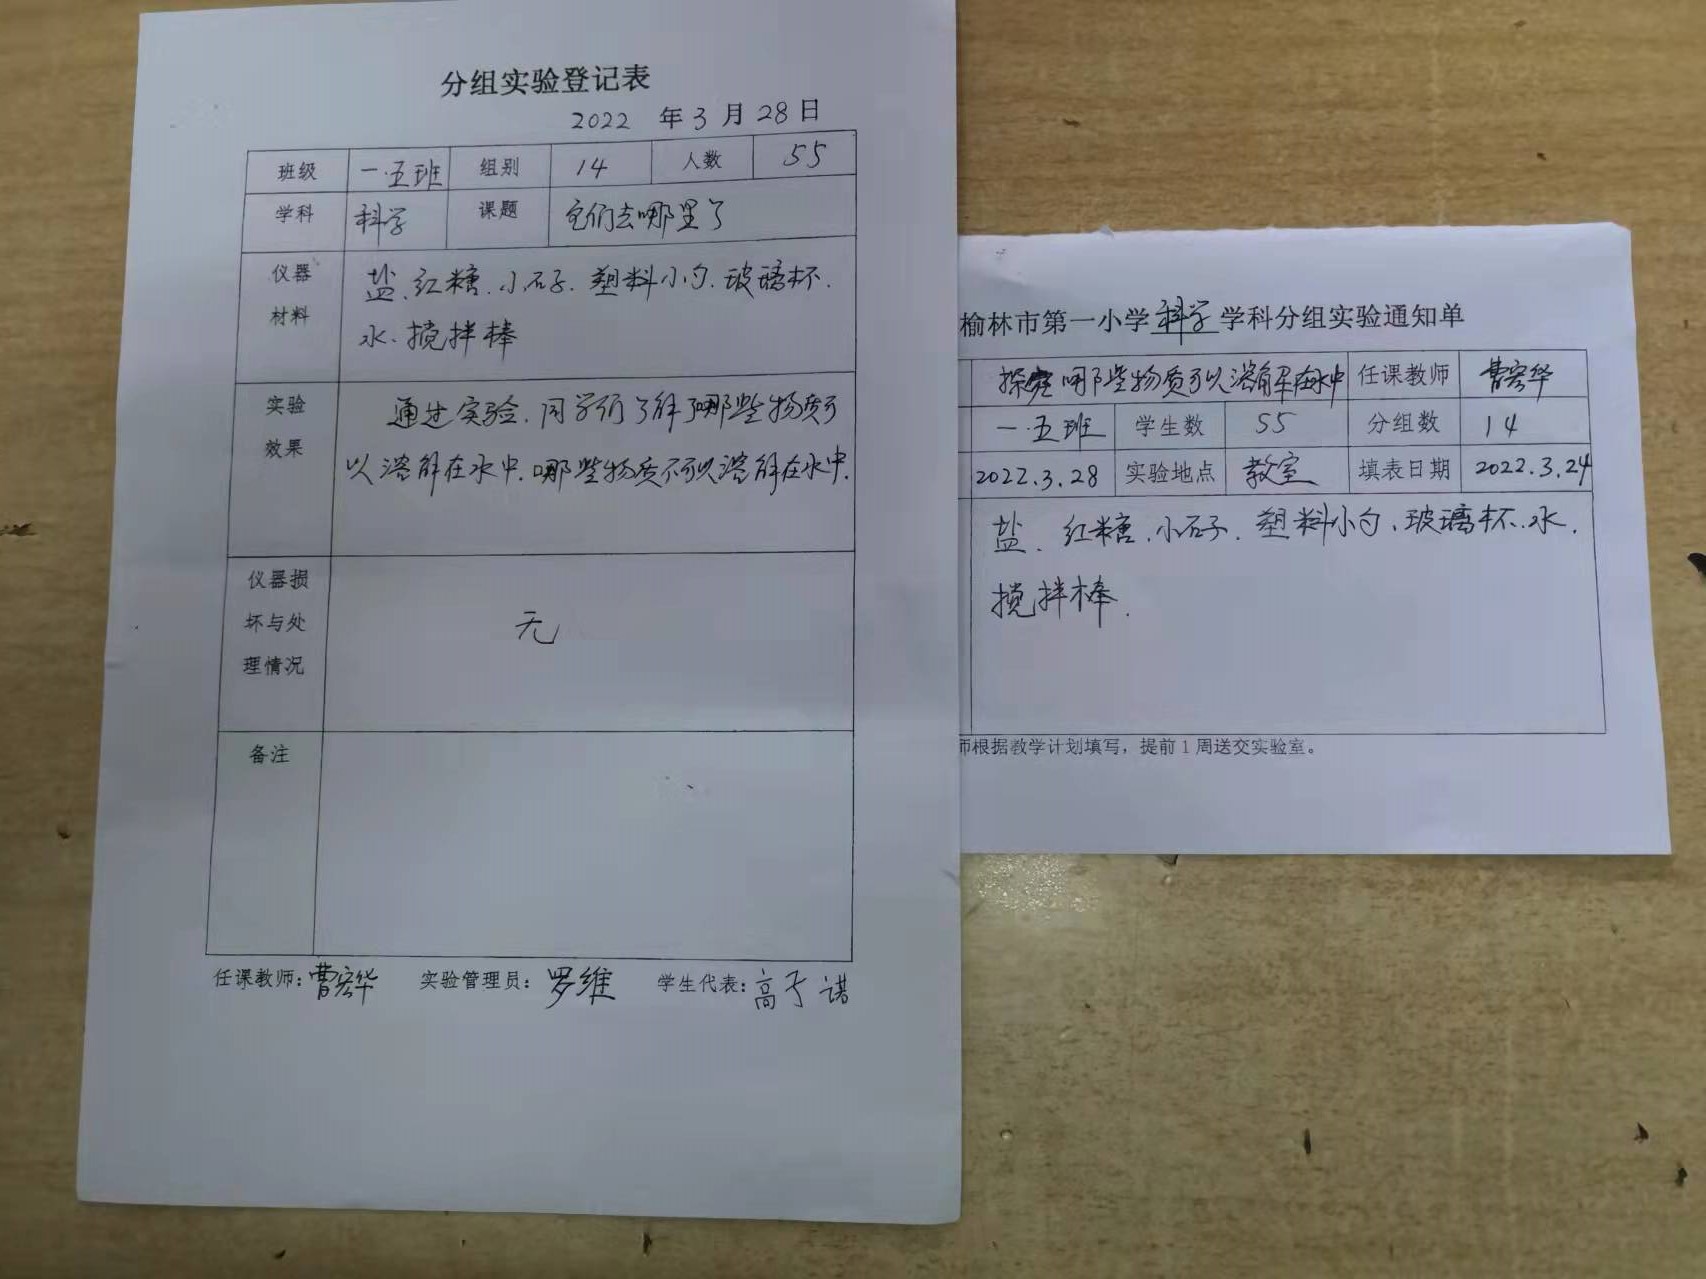 分组实验登记表
2022 年 3 月 28 日
班级 一.五班 组别 14 人数 55
学科 科学 课题 它们去哪里了
仪器
材料
盐、红糖、小石子、塑料小勺、玻璃杯、
水、搅拌棒
实验
效果
通过实验,同学们了解了哪些物质可
以溶解在水中,哪些物质不可以溶解在水中.
仪器损
坏与处
理情况
无
备注
任课教师:曹宏华 实验管理员:罗维 学生代表:高子诺
榆林市第一小学科学学科分组实验通知单
探究哪些物质可以溶解在水中 任课教师 曹宏华
一.五班 学生数 55 分组数 14
2022.3.28 实验地点 教室 填表日期 2022.3.24
盐、红糖、小石子、塑料小勺、玻璃杯、水、
搅拌棒.
师根据教学计划填写,提前1周送交实验室。